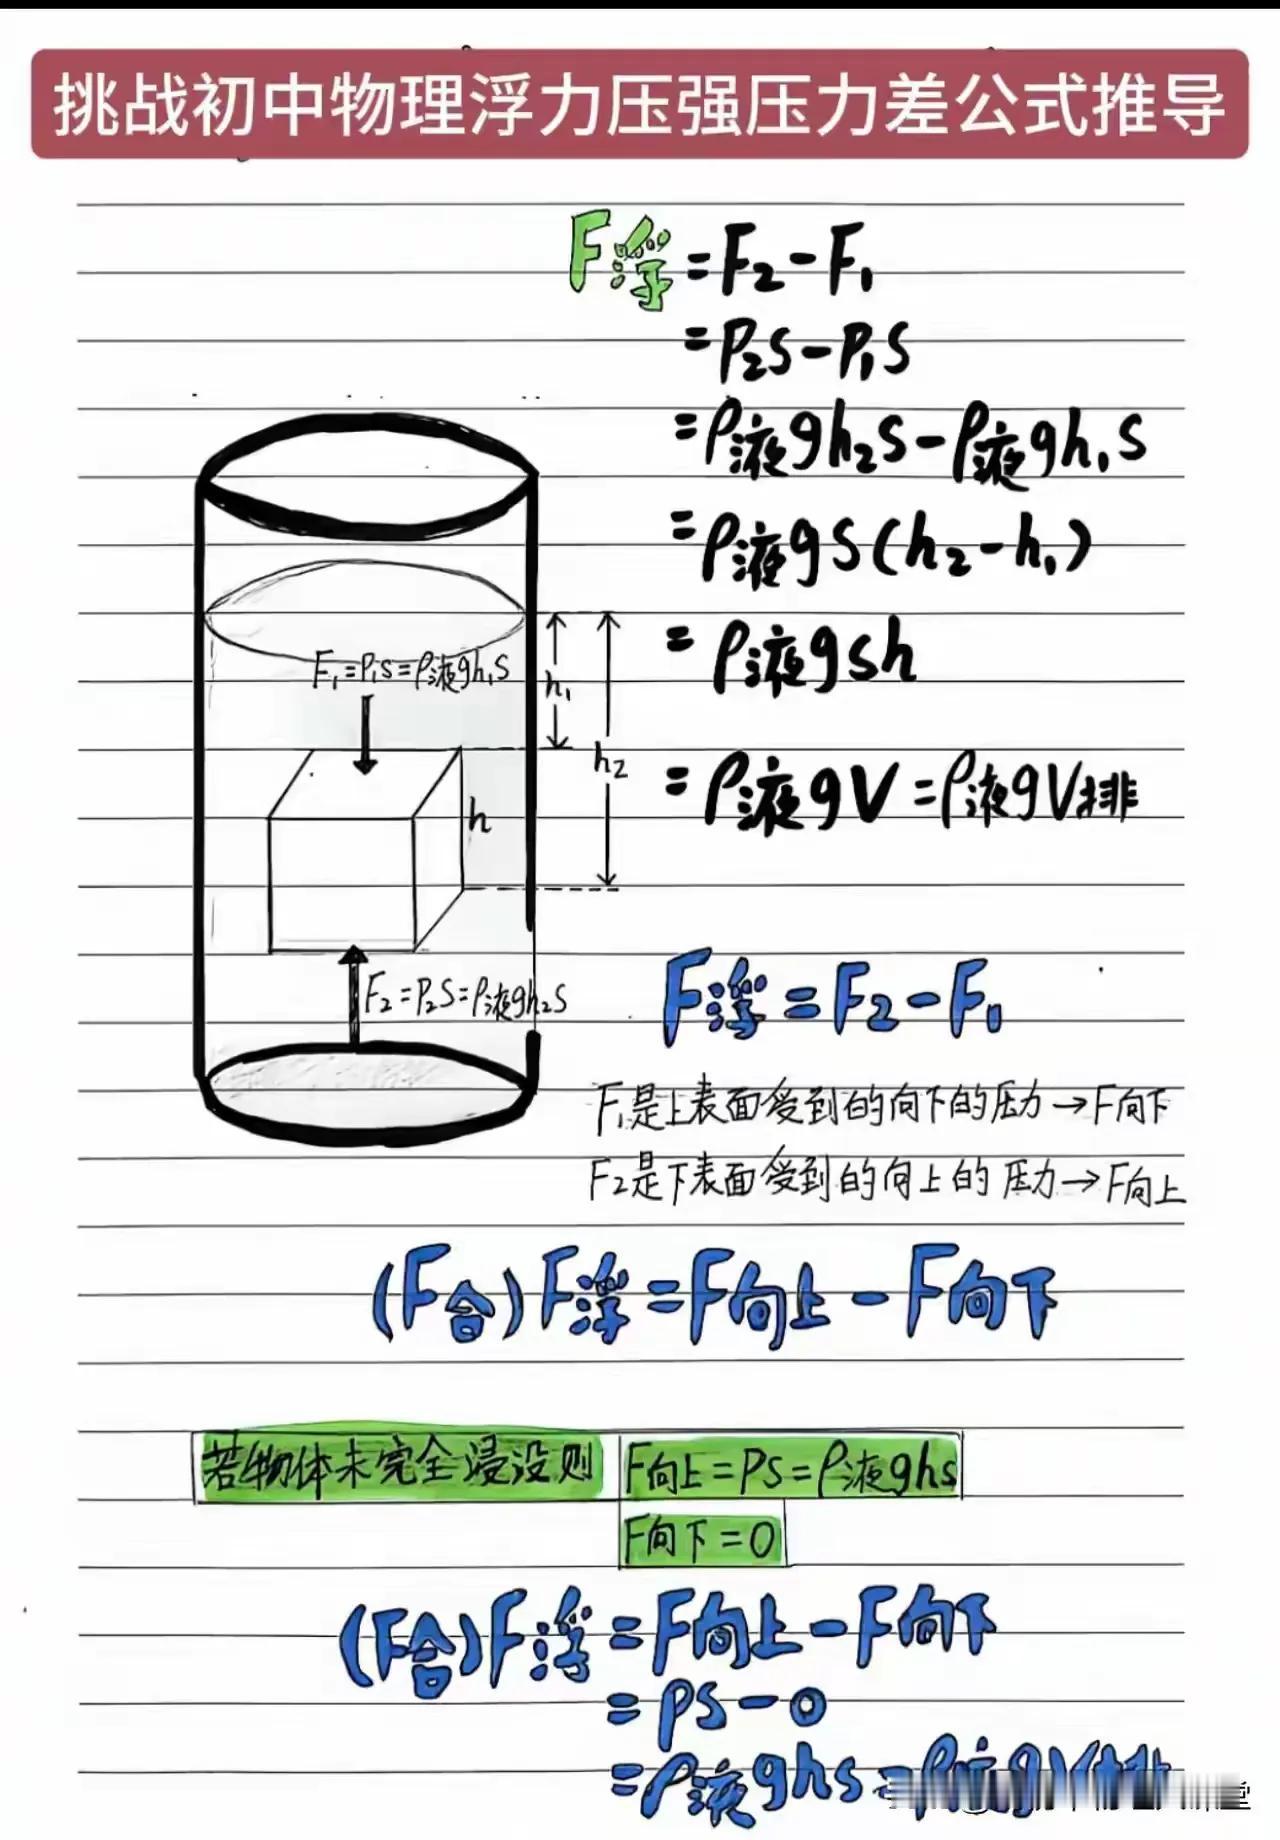 挑战初中物理浮力压强压力差公式推导
F浮=F₂-F₁
=P₂S-P₁S
=ρ液gh₂S-ρ液gh₁S
=ρ液gS(h₂-h₁)
=ρ液gsh
=ρ液gV=ρ液gV排
F₁=P₁S=ρ液gh₁S
h₁
h₂
h
F₂=P₂S=ρ液gh₂S
F浮=F₂-F₁
F₁是上表面受到的向下的压力→F向下
F₂是下表面受到的向上的压力→F向上
(F合)F浮=F向上-F向下
若物体未完全浸没则 F向上=PS=ρ液ghs
F向下=0
(F合)F浮=F向上-F向下
=PS-0
=ρ液ghs=ρ液gV排